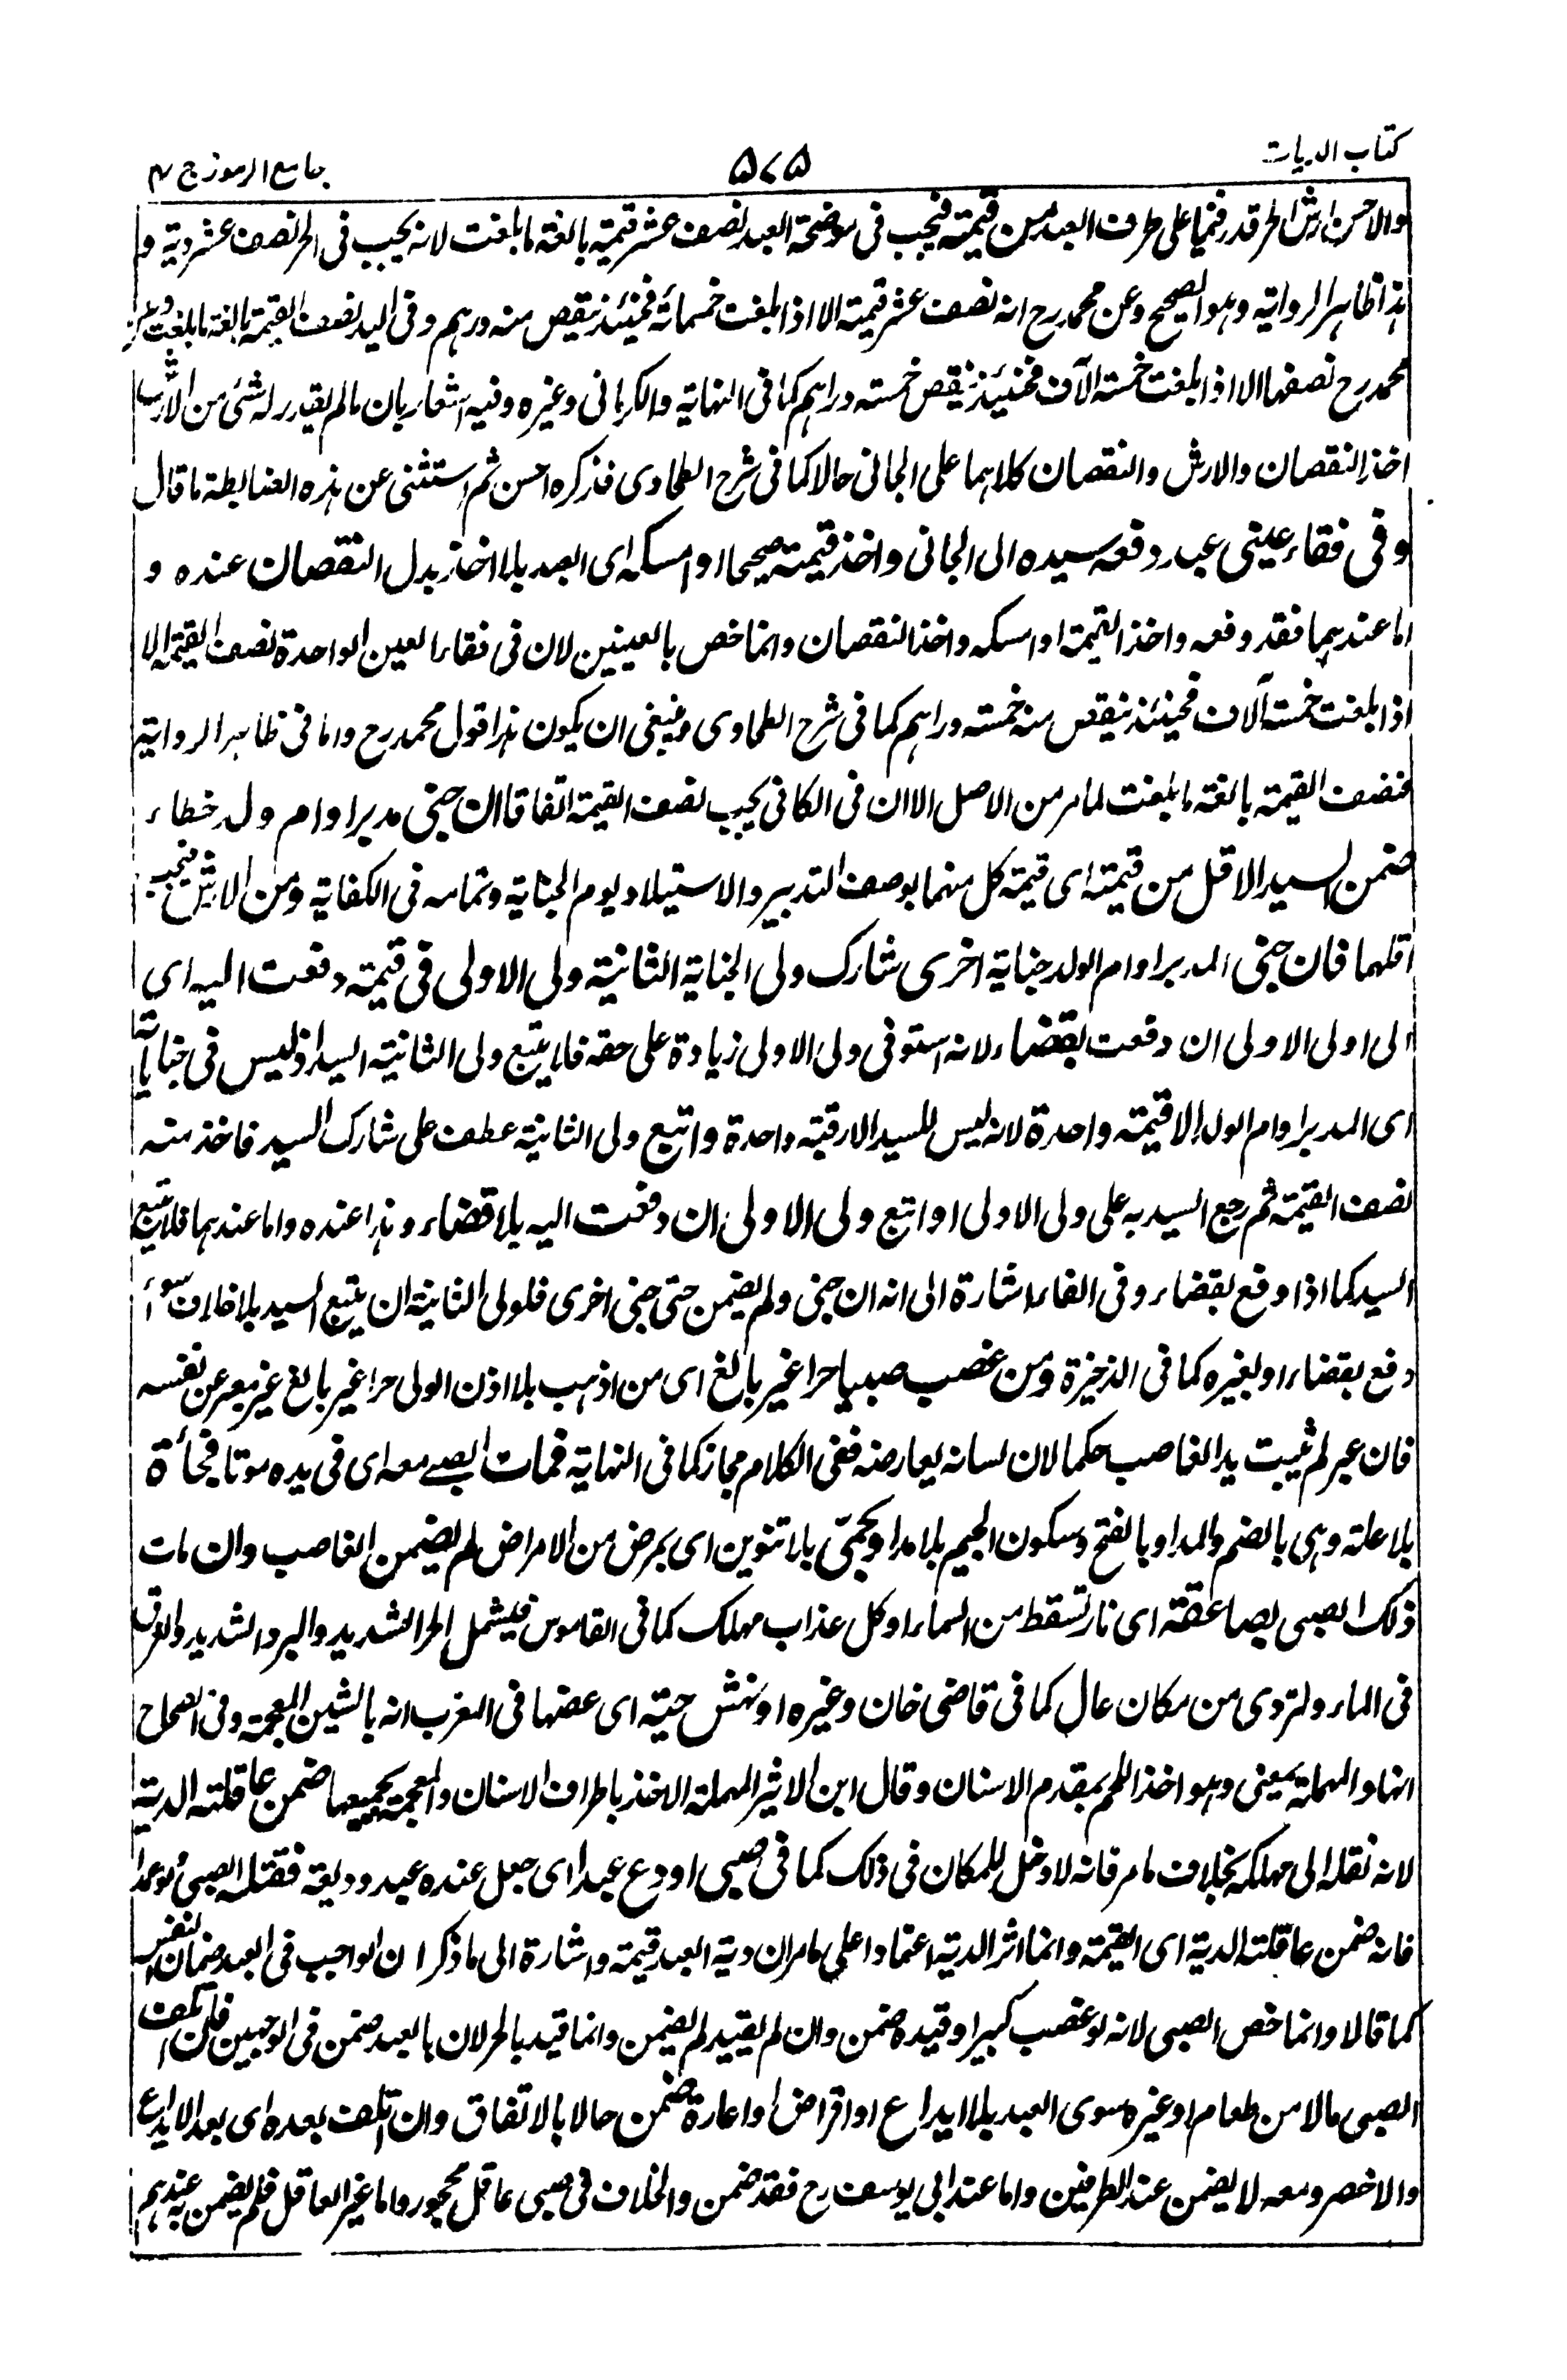 كتاب الديات
۵۷۵
جامع الرموز ج ۲
والاحسن ارش الحر قدر فيما على طرف العبد من قيمته فيجب فى موضحة العبد نصف عشر قيمته بالغة ما بلغت لانه يجب فى الحر نصف عشر دية و
هذا ظاهر الرواية وهو الصحيح وعن محمد رح انه نصف عشر قيمته الا اذا بلغت خمسمائة فحينئذ ينقص منه درهم وفى اليد نصف القيمة بالغة ما بلغت وعن
محمد رح نصفها الا اذا بلغت خمسة الآف فحينئذ ينقص خمسة دراهم كما فى النهاية والكرمانى وغيره وفيه اشعار بان ما لم يقدر له شئ من الارش
اخذ النقصان والارش والنقصان كلاهما على الجانى حالا كما فى شرح الطحاوى فذكره احسن ثم استثنى عن هذه الضابطة ما قال
وفى فقاء عينى عبد دفعه سيده الى الجانى واخذ قيمته صحيحا او امسكه اى العبد بلا اخذ بدل النقصان عنده و
اما عندهما فقد دفعه واخذ القيمة او امسكه واخذ النقصان وانما خص بالعينين لان فى فقاء العين الواحدة نصف القيمة الا
اذا بلغت خمسة آلاف فحينئذ ينقص منه خمسة دراهم كما فى شرح الطحاوى وينبغى ان يكون هذا قول محمد رح واما فى ظاهر الرواية
فنصف القيمة بالغة ما بلغت لما مر من الاصل الا ان فى الكافى يجب نصف القيمة اتفاقا ان جنى مدبر او ام ولد خطاء
ضمن السيد الاقل من قيمته اى قيمة كل منهما بوصف التدبير والاستيلاد يوم الجناية وتمامه فى الكفاية ومن الارش فيجب
اقلهما فان جنى المدبر او ام الولد جناية اخرى شارك ولى الجناية الثانية ولى الاولى فى قيمة دفعت اليه اى
الى اولى الاولى ان دفعت بقضاء لانه استوفى ولى الاولى زيادة على حقه فلا يتبع ولى الثانية السيد اذ ليس فى جناياته
اى المدبر او ام الولد الا قيمة واحدة لانه ليس للسيد الا رقبة واحدة واتبع ولى الثانية عطف على شارك السيد فاخذ منه
نصف القيمة ثم رجع السيد به على ولى الاولى او اتبع ولى الاولى ان دفعت اليه بلا قضاء وهذا عنده واما عندهما فلا يتبع
السيد كما اذا دفع بقضاء وفى الفاء اشارة الى انه ان جنى ولم يضمن حتى جنى اخرى فلولى الثانية ان يتبع السيد بلا خلاف سواء
دفع بقضاء او بغيره كما فى الذخيرة ومن غصب صبيا حرا غير بالغ اى من اذهب بلا اذن الولى حرا غير بالغ غير معبر عن نفسه
فان عبر لم تثبت يد الغاصب حكما لان لسانه يعارضه ففى الكلام مجاز كما فى النهاية فمات الصبے معه اى فى يده موتا فجأة
بلا علة وهى بالضم والمد او بالفتح وسكون الجيم بلا مد او بحمّى بلا تنوين اى بمرض من الامراض لم يضمن الغاصب وان مات
ذلك الصبى بصاعقة اى نار تسقط من السماء او كل عذاب مهلك كما فى القاموس فيشمل الحر الشديد والبرد الشديد والغرق
فى الماء والتردى من مكان عال كما فى قاضى خان وغيره او نهش حية اى عضها فى المغرب انه بالشين المعجمة وفى الصحاح
انها والمهملة بمعنى وهو اخذ اللحم بمقدم الاسنان وقال ابن الاثير المهملة الاخذ باطراف الاسنان والمعجمة بجميعها ضمن عاقلته الدية
لانه نقله الى مهلكه بخلاف ما مر فانه لا دخل للمكان فى ذلك كما فى صبى اودع عبدا اى جعل عنده عبد وديعة فقتله الصبى ولو عمدا
فانه ضمن عاقلته الدية اى القيمة وانما اثر الدية اعتمادا على ما مر ان دية العبد قيمته واشارة الى ما ذكر ان الواجب فى العبد ضمان النفس
كما قالا وانما خص الصبى لانه لو غصب كبيرا وقيده ضمن وان لم يقيد لم يضمن وانما قيد بالحر لان بالعبد ضمن فى الوجهين فان اتلف
الصبى مالا من طعام او غيره سوى العبد بلا ايداع او اقراض او اعارة ضمن حالا بالاتفاق وان اتلف بعده اى بعد الايداع
والاخصر ومعه لا يضمن عند الطرفين واما عند ابى يوسف رح فقد ضمن والخلاف فى صبى عاقل محجور واما غير العاقل فلم يضمن به عندهم